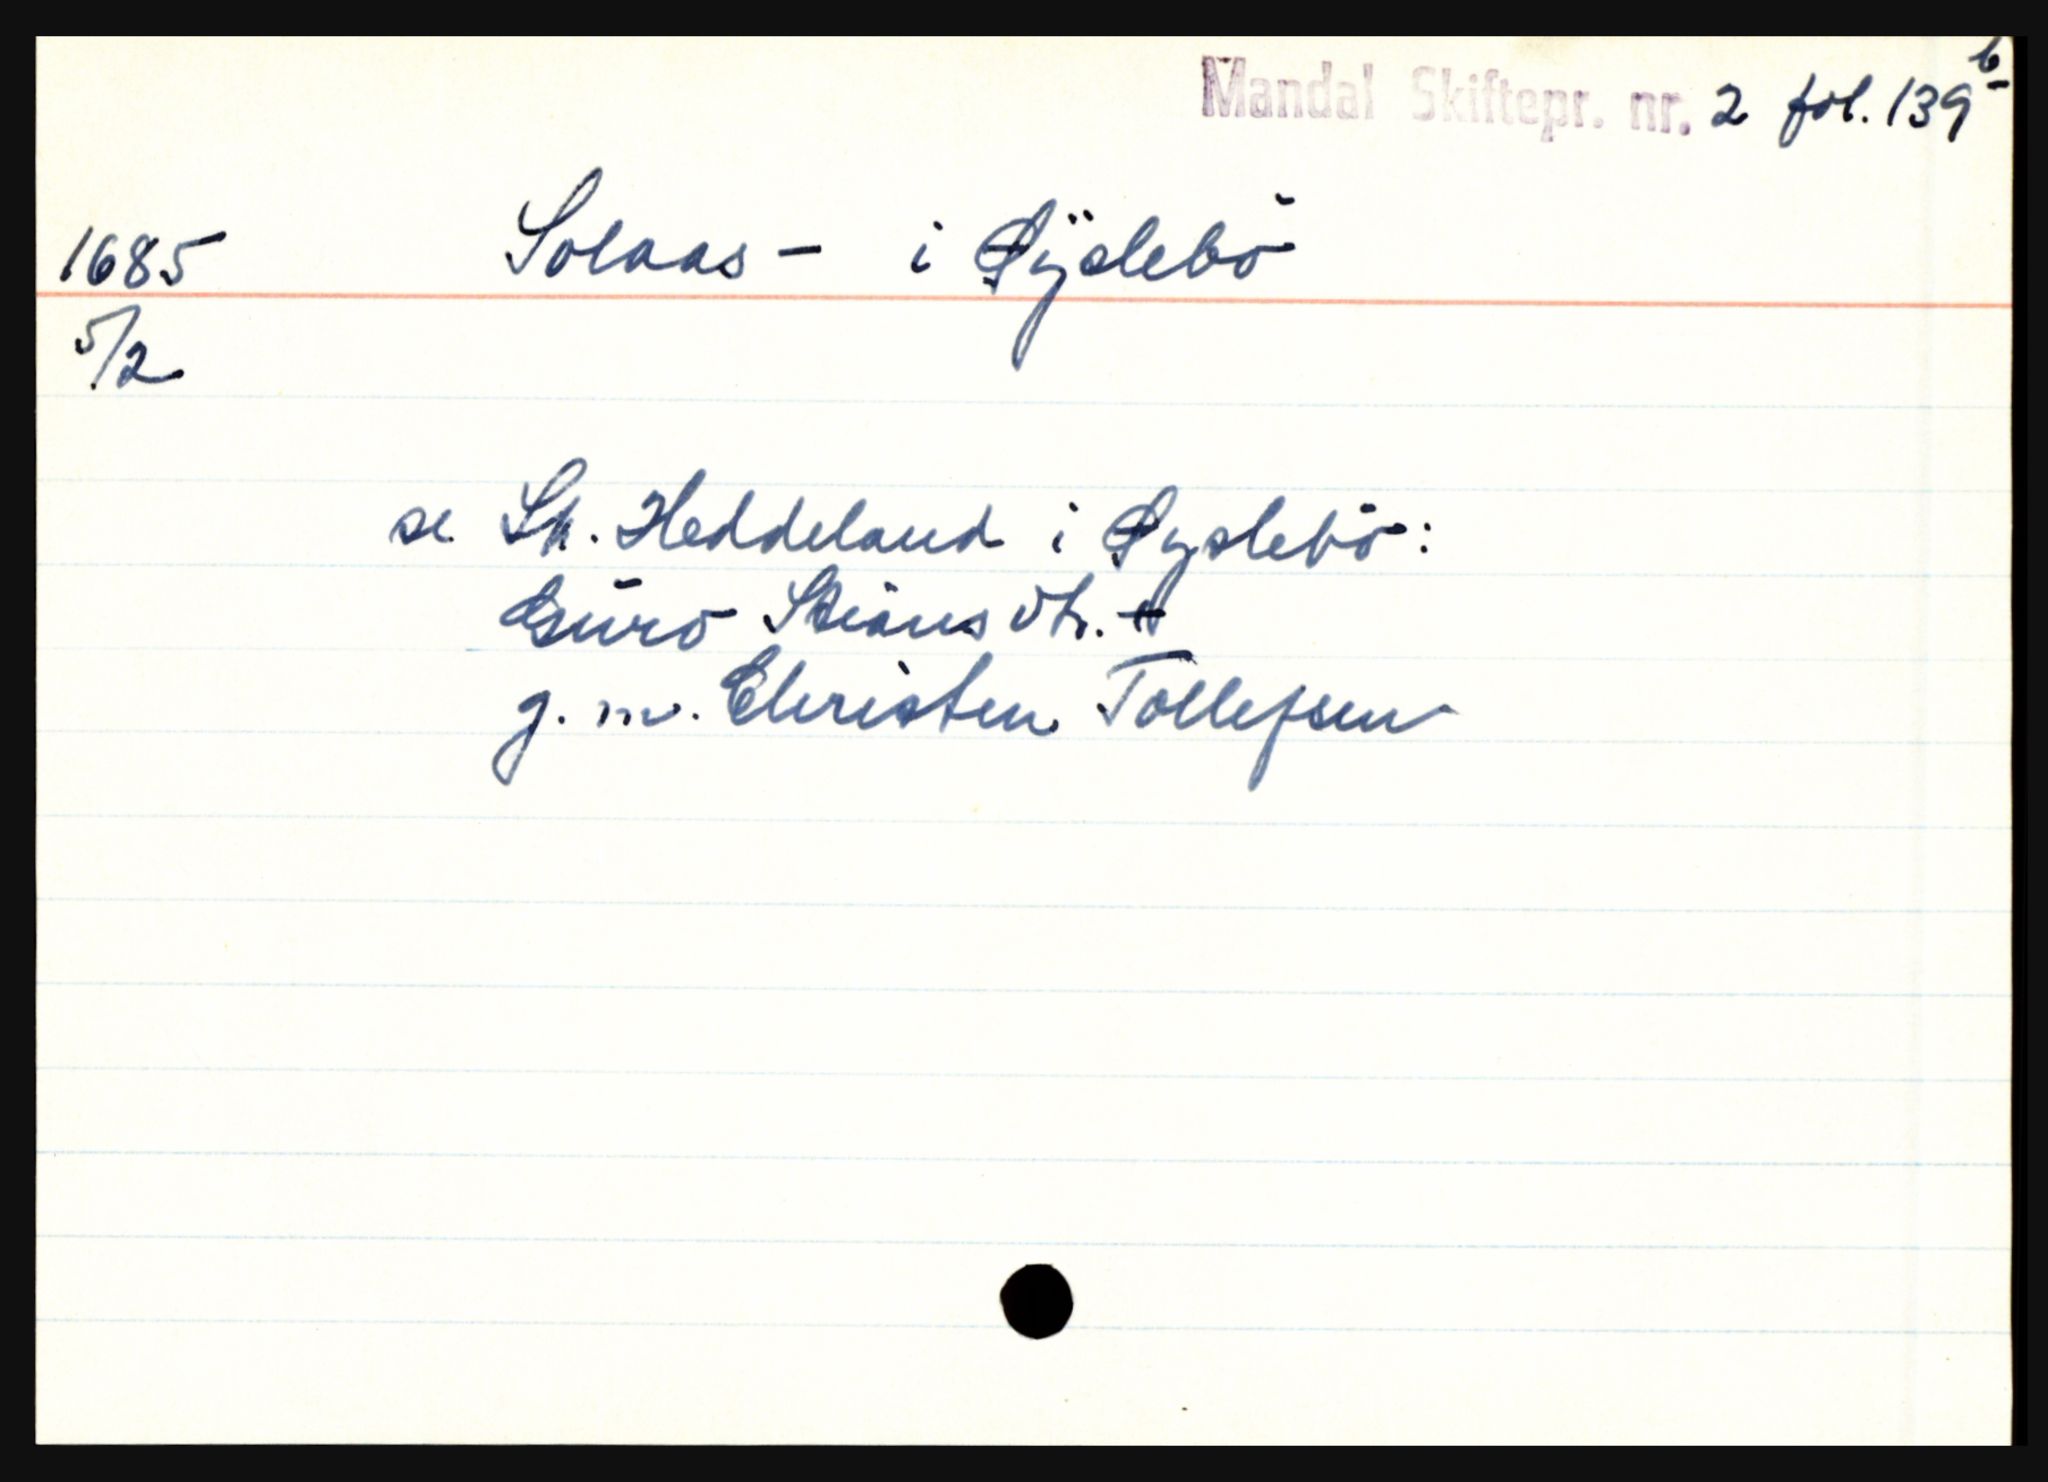 Mandal Skiftepr. nr. 2 fol. 139 b
1685 Solaas - i Øÿslebö
5/2
se Heddeland i Øyslebö:
Guro dtr.
g. m. Christen Tollefsen